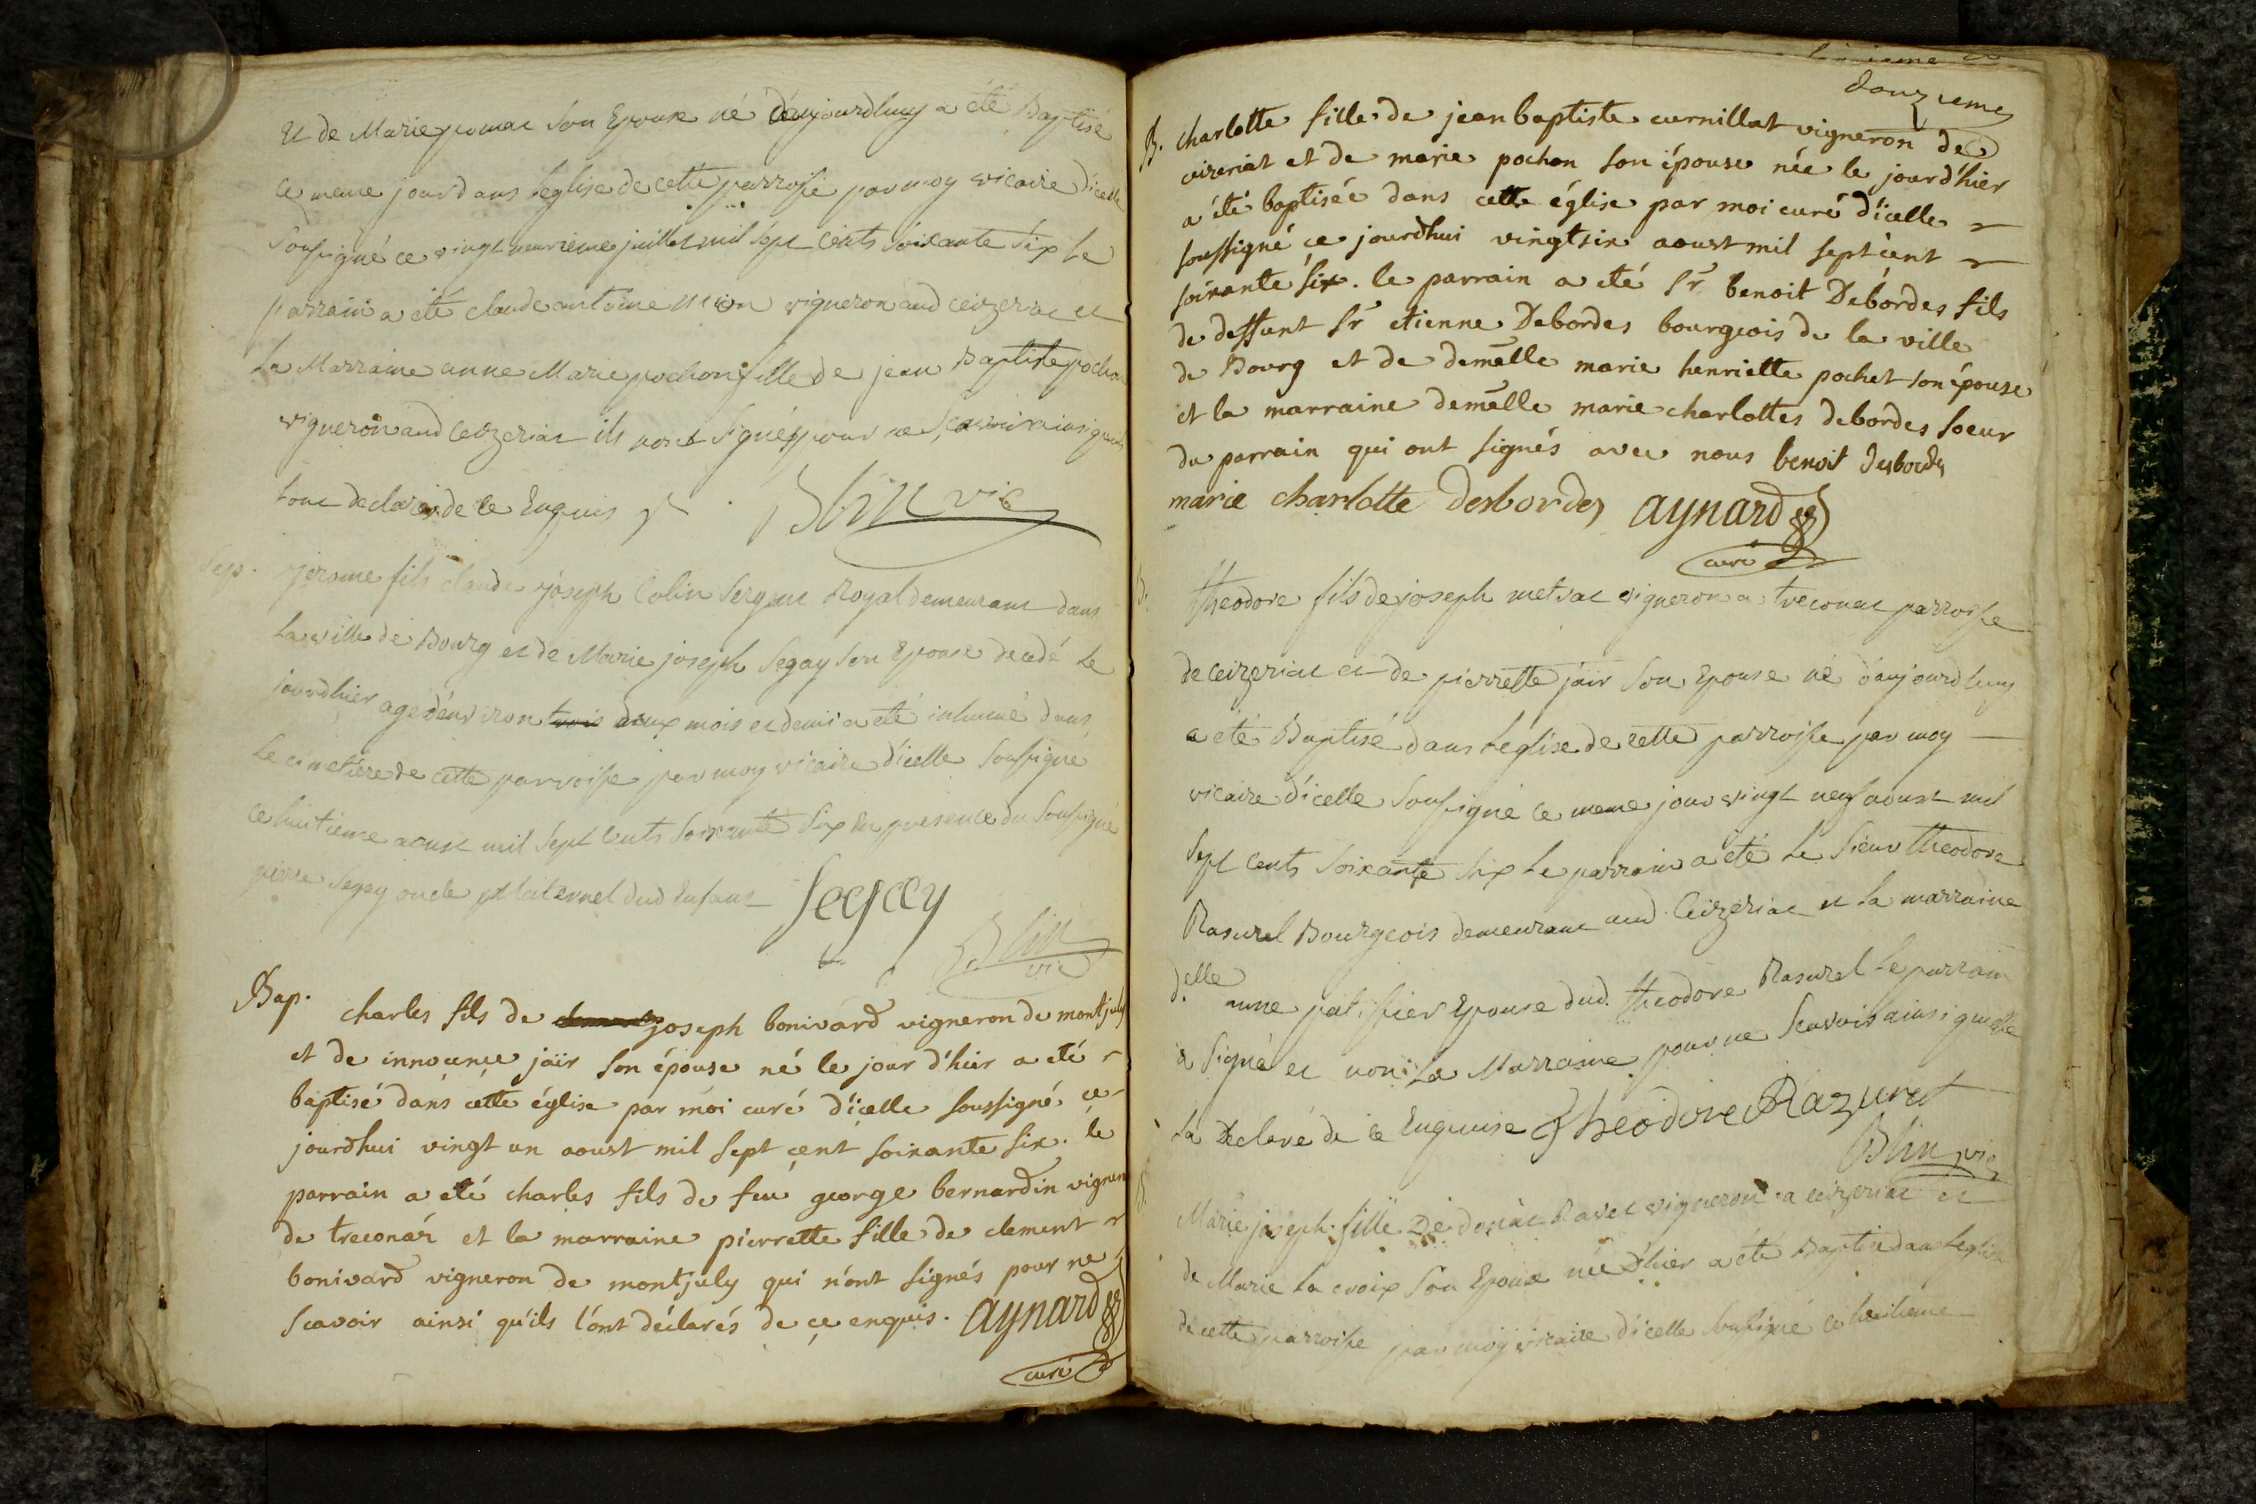 Et de Marie son Epouse né daujourdhuy a eté Baptisé
ce meme jour dans leglise de cette parroisse par moy vicaire dicelle
soussigné ce vingt neuvieme juillet mil sept cents soixante six le
parrain a eté claude antoine vigneron aud ceizeriac et
La Marraine anne Marie pochon fille de jean Baptiste pochon
vigneron aud Ceizeriac ils nont signés pour ne scavoir ainsi quils
lont declarés de ce Enquis Blin vic
Sep. jerome fils claude joseph Colin sergent Royal demeurant dans
la ville de Bourg et de Marie joseph Segay son Epouse decedé le
jourdhier agé denviron trois deux mois et demi a eté inhumé dans
Le cimetiere de cette parroisse par moy vicaire d'icelle soussigné
ce huitieme aoust mil sept cents soixante six En presence du soussigné
pierre Segay oncle Maternel dud Enfant Segay
Blin
vic
Bap. charles fils de joseph bonivard vigneron de montjuly
et de innocence jaïr son épouse né le jour d'hier a eté
baptisé dans cette église par moi curé d'icelle soussigné ce
jourdhui vingt un aoust mil sept cent soixante six. le
parrain a eté charles fils de feu george bernardin vigneron
de treconas et la marraine pierrette fille de clement
bonivard vigneron de montjuly qui n'ont signés pour ne
scavoir ainsi qu'ils l'ont déclarés de ce enquis. aynard
curé
douzieme
B. charlotte fille de jean baptiste curnillat vigneron de
ceizeriat et de marie pochon son épouse née le jourd'hier
a été baptisée dans cette église par moi curé d'icelle
soussigné ce jourdhui vingtsix aoust mil sept cent
soixante six. le parrain a eté Sr benoit Debordes fils
de deffunt Sr etienne Debordes bourgeois de la ville
de Bourg et de demelle marie henriette pochet son épouse
et la marraine demelle marie charlottes debordes soeur
du parrain qui ont signés avec nous benoit desbordes
marie charlotte desbordes aynard
curé
B. theodore fils de joseph vigneron a treconas parroisse
de Ceizeriac et de pierrette jaïr son Epouse né d'aujourdhuy
a eté Baptisé dans leglise de cette parroisse par moy
vicaire d'icelle soussigné ce meme jour vingt neuf aoust mil
sept cents soixante six le parrain a eté le sieur theodore
Rasurel Bourgeois demeurant aud Ceizeriac et la marraine
d.elle anne patissier Epouse dud. theodore Rasurel le parrain
a signé et non La Marraine pour ne scavoir ainsi quelle
la Declaré de ce Enquise Theodore Razurel
Blin vic
B. Marie joseph fille De donat Ravet vigneron a ceizeriac et
de Marie la croix son Epouse née d'hier a eté Baptisé dans leglise
de cette parroisse par moy vicaire d'icelle soussigné ce huitieme